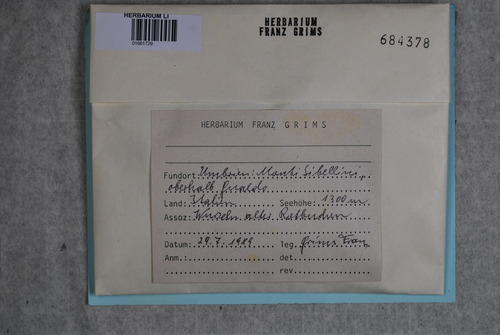 HERBARIUM LI
01661729
HERBARIUM
FRANZ GRIMS
684378
HERBARIUM FRANZ GRIMS
Fundort: Umbrien: Monti Sibellini,
oberhalb Gualdo
Land: Italien Seehöhe: 1300 m
Assoz: Wurzeln alter Rotbuchen
Datum: 29.7.1989 leg. Grims Franz
Anm.: det.
rev.